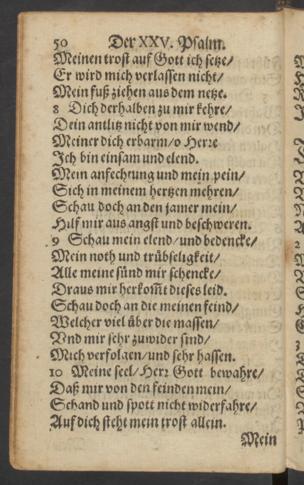 50 Der XXV. Psalm.
Meinen trost auf Gott ich setze/
Er wird mich verlassen nicht/
Mein fuß ziehen aus dem netze.
8 Dich derhalben zu mir kehre/
Dein antlitz nicht von mir wend/
Meiner dich erbarm/ o Herre
Ich bin einsam und elend.
Mein anfechtung und mein pein/
Sich in meinem hertzen mehren/
Schau doch an den jamer mein/
Hilf mir aus angst und beschweren.
9 Schau mein elend/ und bedencke/
Mein noth und trübseligkeit/
Alle meine sünd mir schencke/
Draus mir herkom̃t dieses leid.
Schau doch an die meinen feind/
Welcher viel über die massen/
Vnd mir sehr zuwider sind/
Mich verfolgen/ und sehr hassen.
10 Meine seel/ Herr Gott bewahre/
Daß mir von den feinden mein/
Schand und spott nicht widerfahre/
Auf dich steht mein trost allein.
Mein